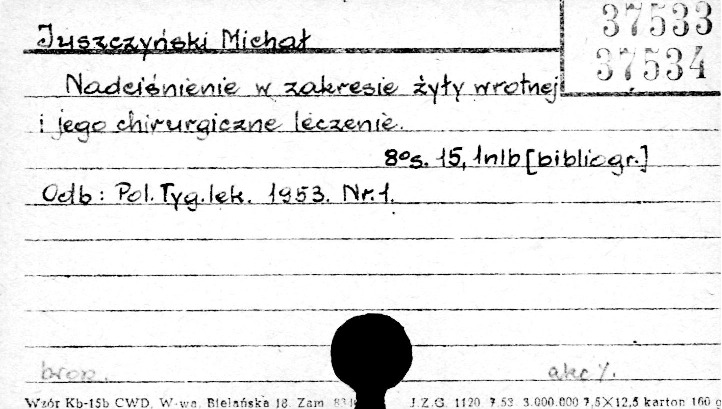 37533
37534
Juszczyński Michał
Nadciśnienie w zakresie żyły wrotnej
i jego chirurgiczne leczenie.
8°s. 15, 1nlb [bibliogr.]
Odb: Pol. Tyg. lek. 1953. Nr. 1.
brosz.
akc 7.
Wzór Kb-15b CWD, W-wa, Bielańska 18. Zam. 834 J.Z.G. 1120 7.53. 3.000.000 7,5×12,5 karton 160 g